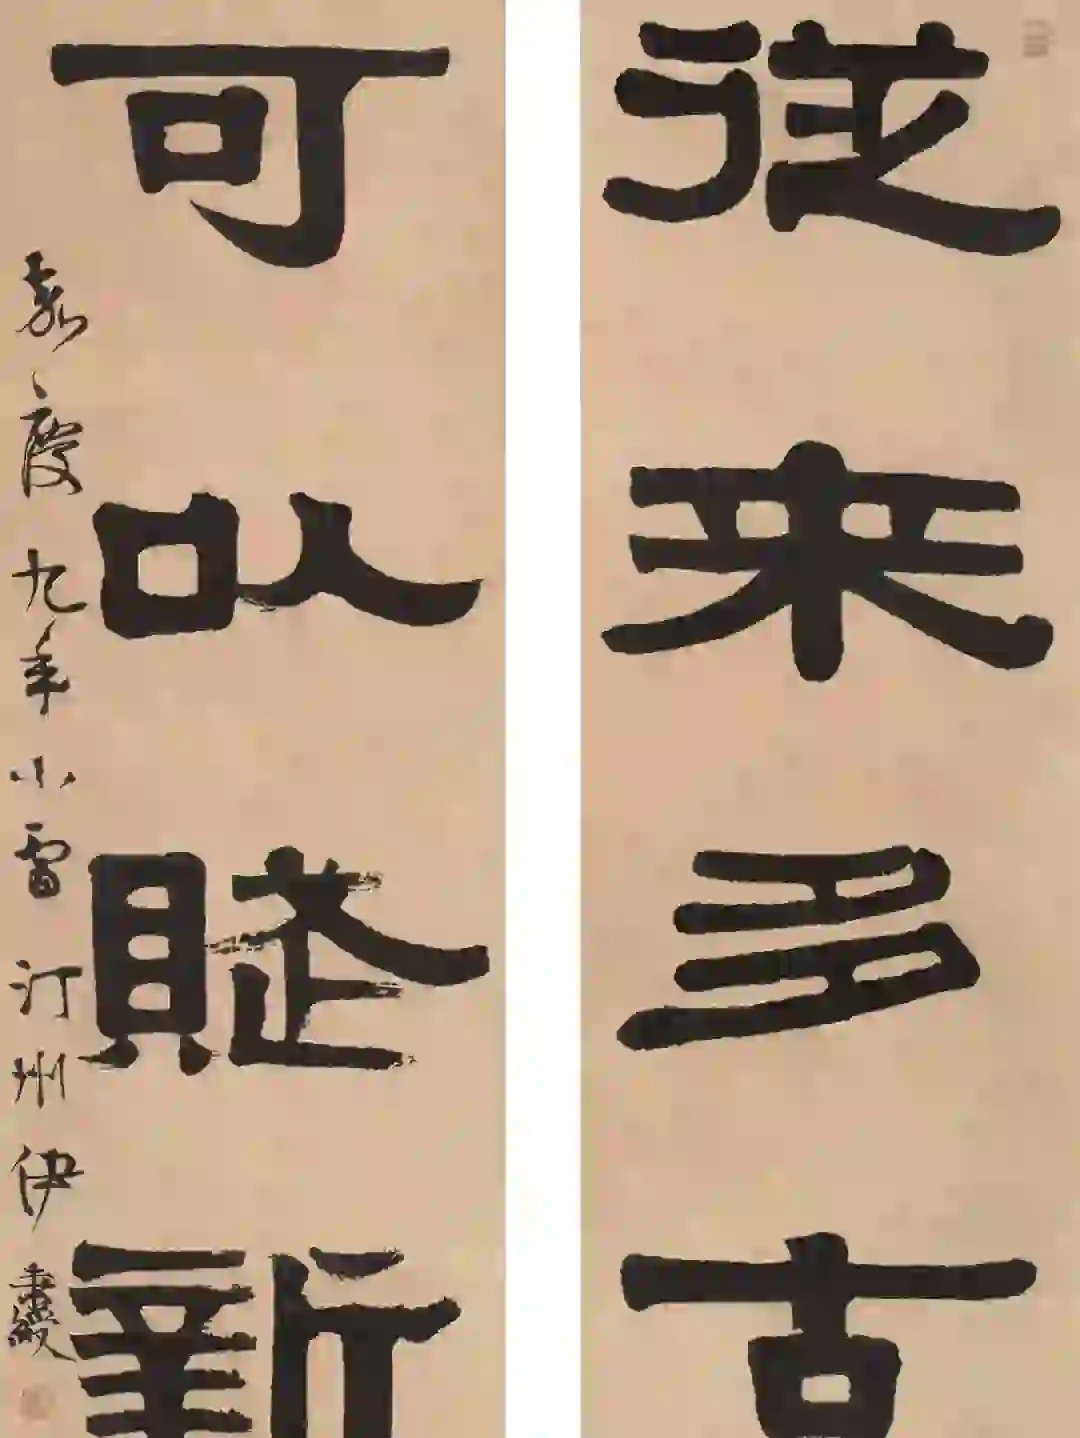 從來多古
可以賦新
嘉慶九年小雪汀州伊秉綬